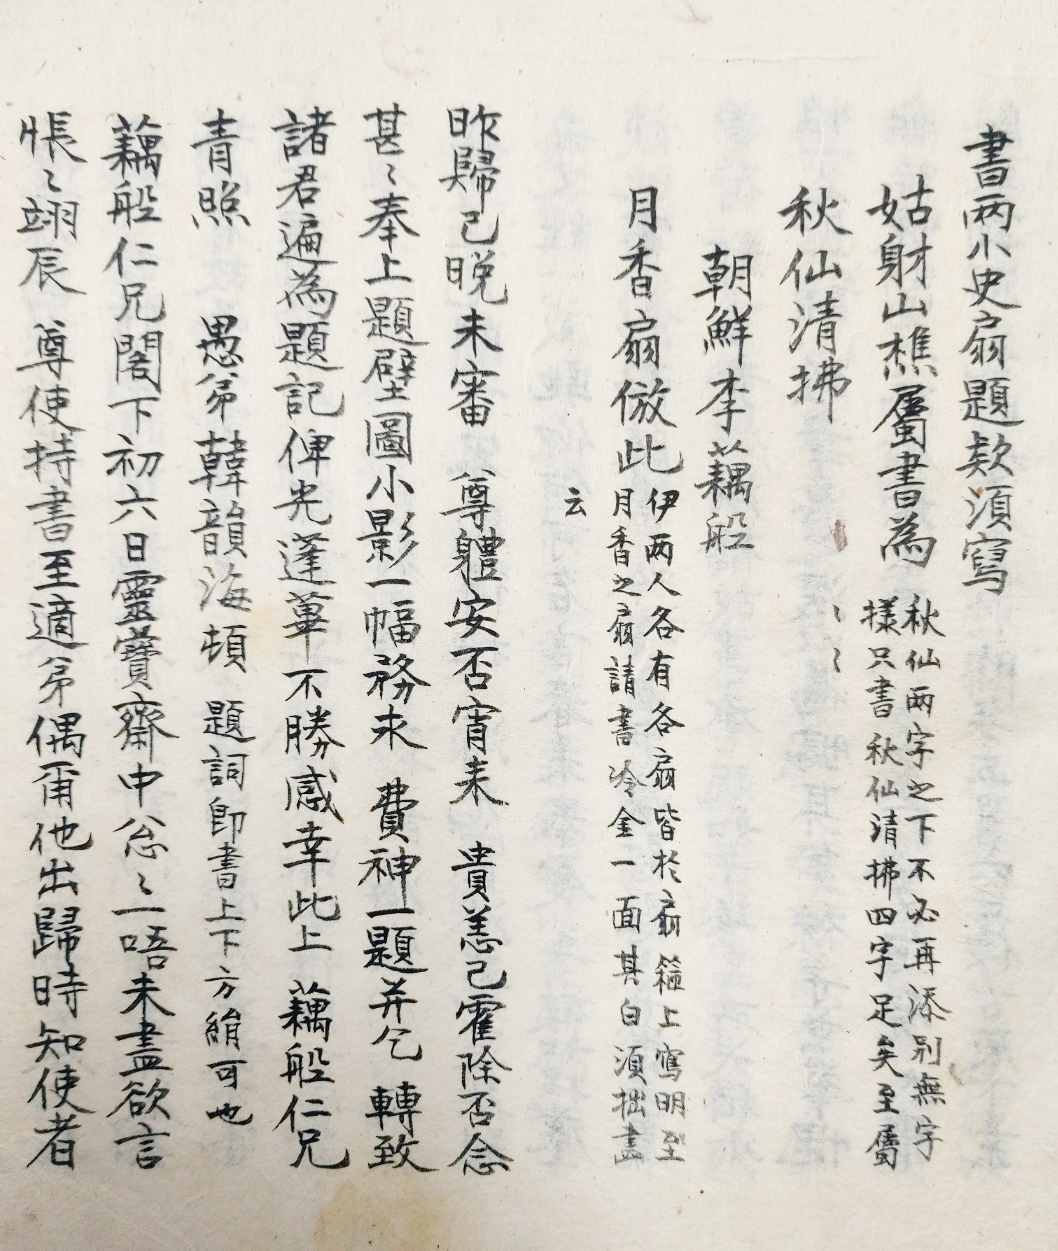 書兩小史扇題欵須寫
姑射山樵屬書為
秋仙兩字之下不必再添別無字
樣只書秋仙清拂四字足矣至屬
秋仙清拂
朝鮮李藕船
月香扇倣此
伊兩人各有各扇皆於扇箍上寫明至
月香之扇請書冷金一面其白須拙畫
云
昨歸已晚未審 尊軆安否宵來 貴恙已霍除否念
甚〻奉上題壁圖小影一幅務求 費神一題并乞 轉致
諸君遍為題記俾光蓬蓽不勝感幸此上 藕船仁兄
青照 愚弟韓韻海頓 題詞即書上下方絹可也
藕船仁兄閣下初六日靈寶齋中怱〻一唔未盡欲言
悵〻翊辰 尊使持書至適弟偶爾他出歸時知使者